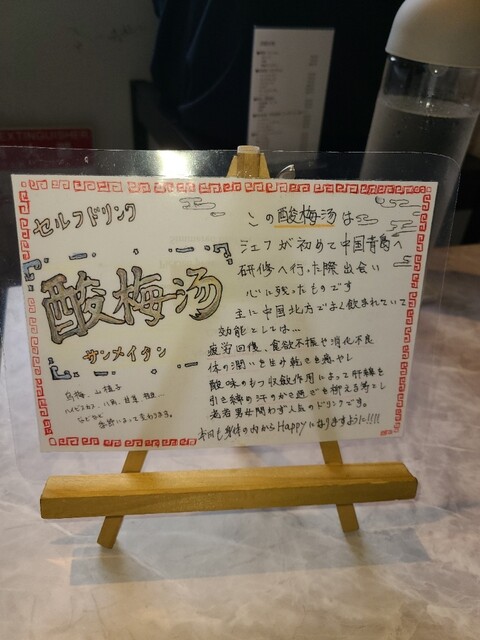 セルフドリンク
酸梅汤
サンメイタン
烏梅、山楂子
ハイビスカス、八角、甘草
などなど
季節によって変わります。
この酸梅汤は
シェフが初めて中国青島へ
研修へ行った際出会い
心に残ったものです
主に中国北方でよく飲まれていて
効能としては…
疲労回復、食欲不振や消化不良
体の潤いを生み乾きを癒やし
酸味のもつ収斂作用によって肝臓を
引き締め汗のかき過ぎを抑える等とし
老若男女問わず人気のドリンクです。
本日も身体の内からHappyになりますように!!!!